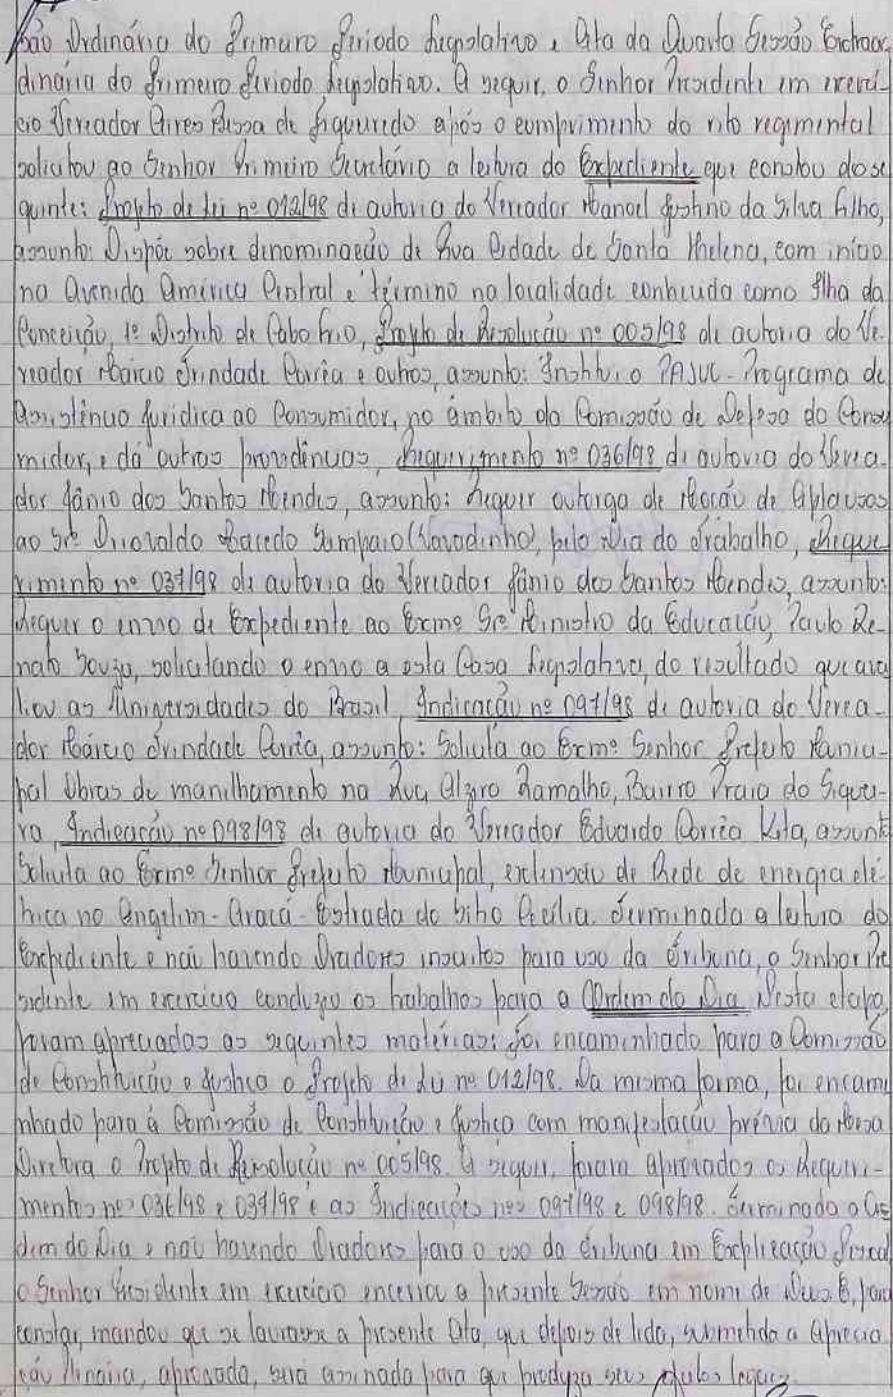 são Ordinária do Primeiro Período Legislativo e Ata da Quarta Sessão Extraor-
dinária do Primeiro Período Legislativo. A seguir, o Senhor Presidente em exercí-
cio Vereador Aires Bessa de Figueiredo após o cumprimento do rito regimental
solicitou ao Senhor Primeiro Secretário a leitura do Expediente que constou do se
guinte: Projeto de Lei nº 012/98 de autoria do Vereador Manoel Justino da Silva Filho,
assunto: Dispõe sobre denominação de Rua Cidade de Santa Helena, com início
na Avenida América Central e término na localidade conhecida como Ilha da
Conceição, 1º Distrito de Cabo Frio, Projeto de Resolução nº 005/98 de autoria do Ve-
reador Márcio Trindade Corrêa e outros, assunto: Institui o PAJUC - Programa de
Assistência Jurídica ao Consumidor, no âmbito da Comissão de Defesa do Consu
midor, e dá outras providências, Requerimento nº 036/98 de autoria do Verea-
dor Jânio dos Santos Mendes, assunto: Requer outorga de Moção de Aplausos
ao Srº Macedo Sampaio (Vavadinho), pelo Dia do Trabalho, Reque
rimento nº 037/98 de autoria do Vereador Jânio dos Santos Mendes, assunto:
Requer o envio de Expediente ao Exmº Srº Ministro da Educação, Paulo Re-
nato Souza, solicitando o envio a esta Casa Legislativa, do resultado que ava
liou as Universidades do Brasil, Indicação nº 097/98 de autoria do Verea-
dor Márcio Trindade Corrêa, assunto: Solicita ao Exmº Senhor Prefeito Munici-
pal Obras de manilhamento na Rua Alziro Ramalho, Bairro Praia do Siquei-
ra, Indicação nº 098/98 de autoria do Vereador Eduardo Corrêa Kita, assunto
Solicita ao Exmº Senhor Prefeito Municipal, extensão de Rede de energia elé-
trica no Angelim - Araçá - Estrada do Sítio Cecília. Terminada a leitura do
Expediente e não havendo Oradores inscritos para uso da Tribuna, o Senhor Pre
sidente em exercício conduziu os trabalhos para a Ordem do Dia. Nesta etapa,
foram apreciadas as seguintes matérias: Foi encaminhado para a Comissão
de Constituição e Justiça o Projeto de Lei nº 012/98. Da mesma forma, foi encami
nhado para à Comissão de Constituição e Justiça com manifestação prévia da Mesa
Diretora o Projeto de Resolução nº 005/98. A seguir, foram aprovados os Requeri-
mentos nºs 036/98 e 037/98 e as Indicações nºs 097/98 e 098/98. Terminada a Or
dem do Dia e não havendo Oradores para o uso da Tribuna em Explicação Pessoal
o Senhor Presidente em exercício encerrou a presente Sessão em nome de Deus. E, para
constar, mandou que se lavrasse a presente Ata, que depois de lida, submetida a Aprecia
ção Plenária, aprovada, será assinada para que produza seus efeitos legais.